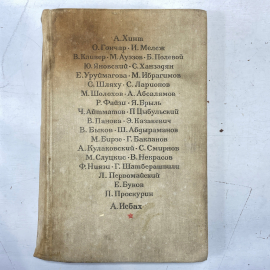 А. Хинт
О. Гончар · И. Мележ
В. Козлов · М. Аукин · Б. Полевой
Ю. Яновский · С. Ханзадян
Е. Уруймагова · М. Ибрагимов
С. Шляху · С. Ларионов
М. Шолохов · А. Абсалямов
Р. Файзи · Я. Брыль
Ч. Айтматов · П. Цыбульский
В. Панова · Э. Казакевич
В. Быков · Ш. Абдыраманов
М. Бирзе · Г. Бакланов
А. Кулаковский · С. Смирнов
М. Слуцкис · В. Некрасов
Ф. Ниязи · Г. Шатберашвили
Л. Первомайский
Е. Буков
П. Проскурин
А. Исбах